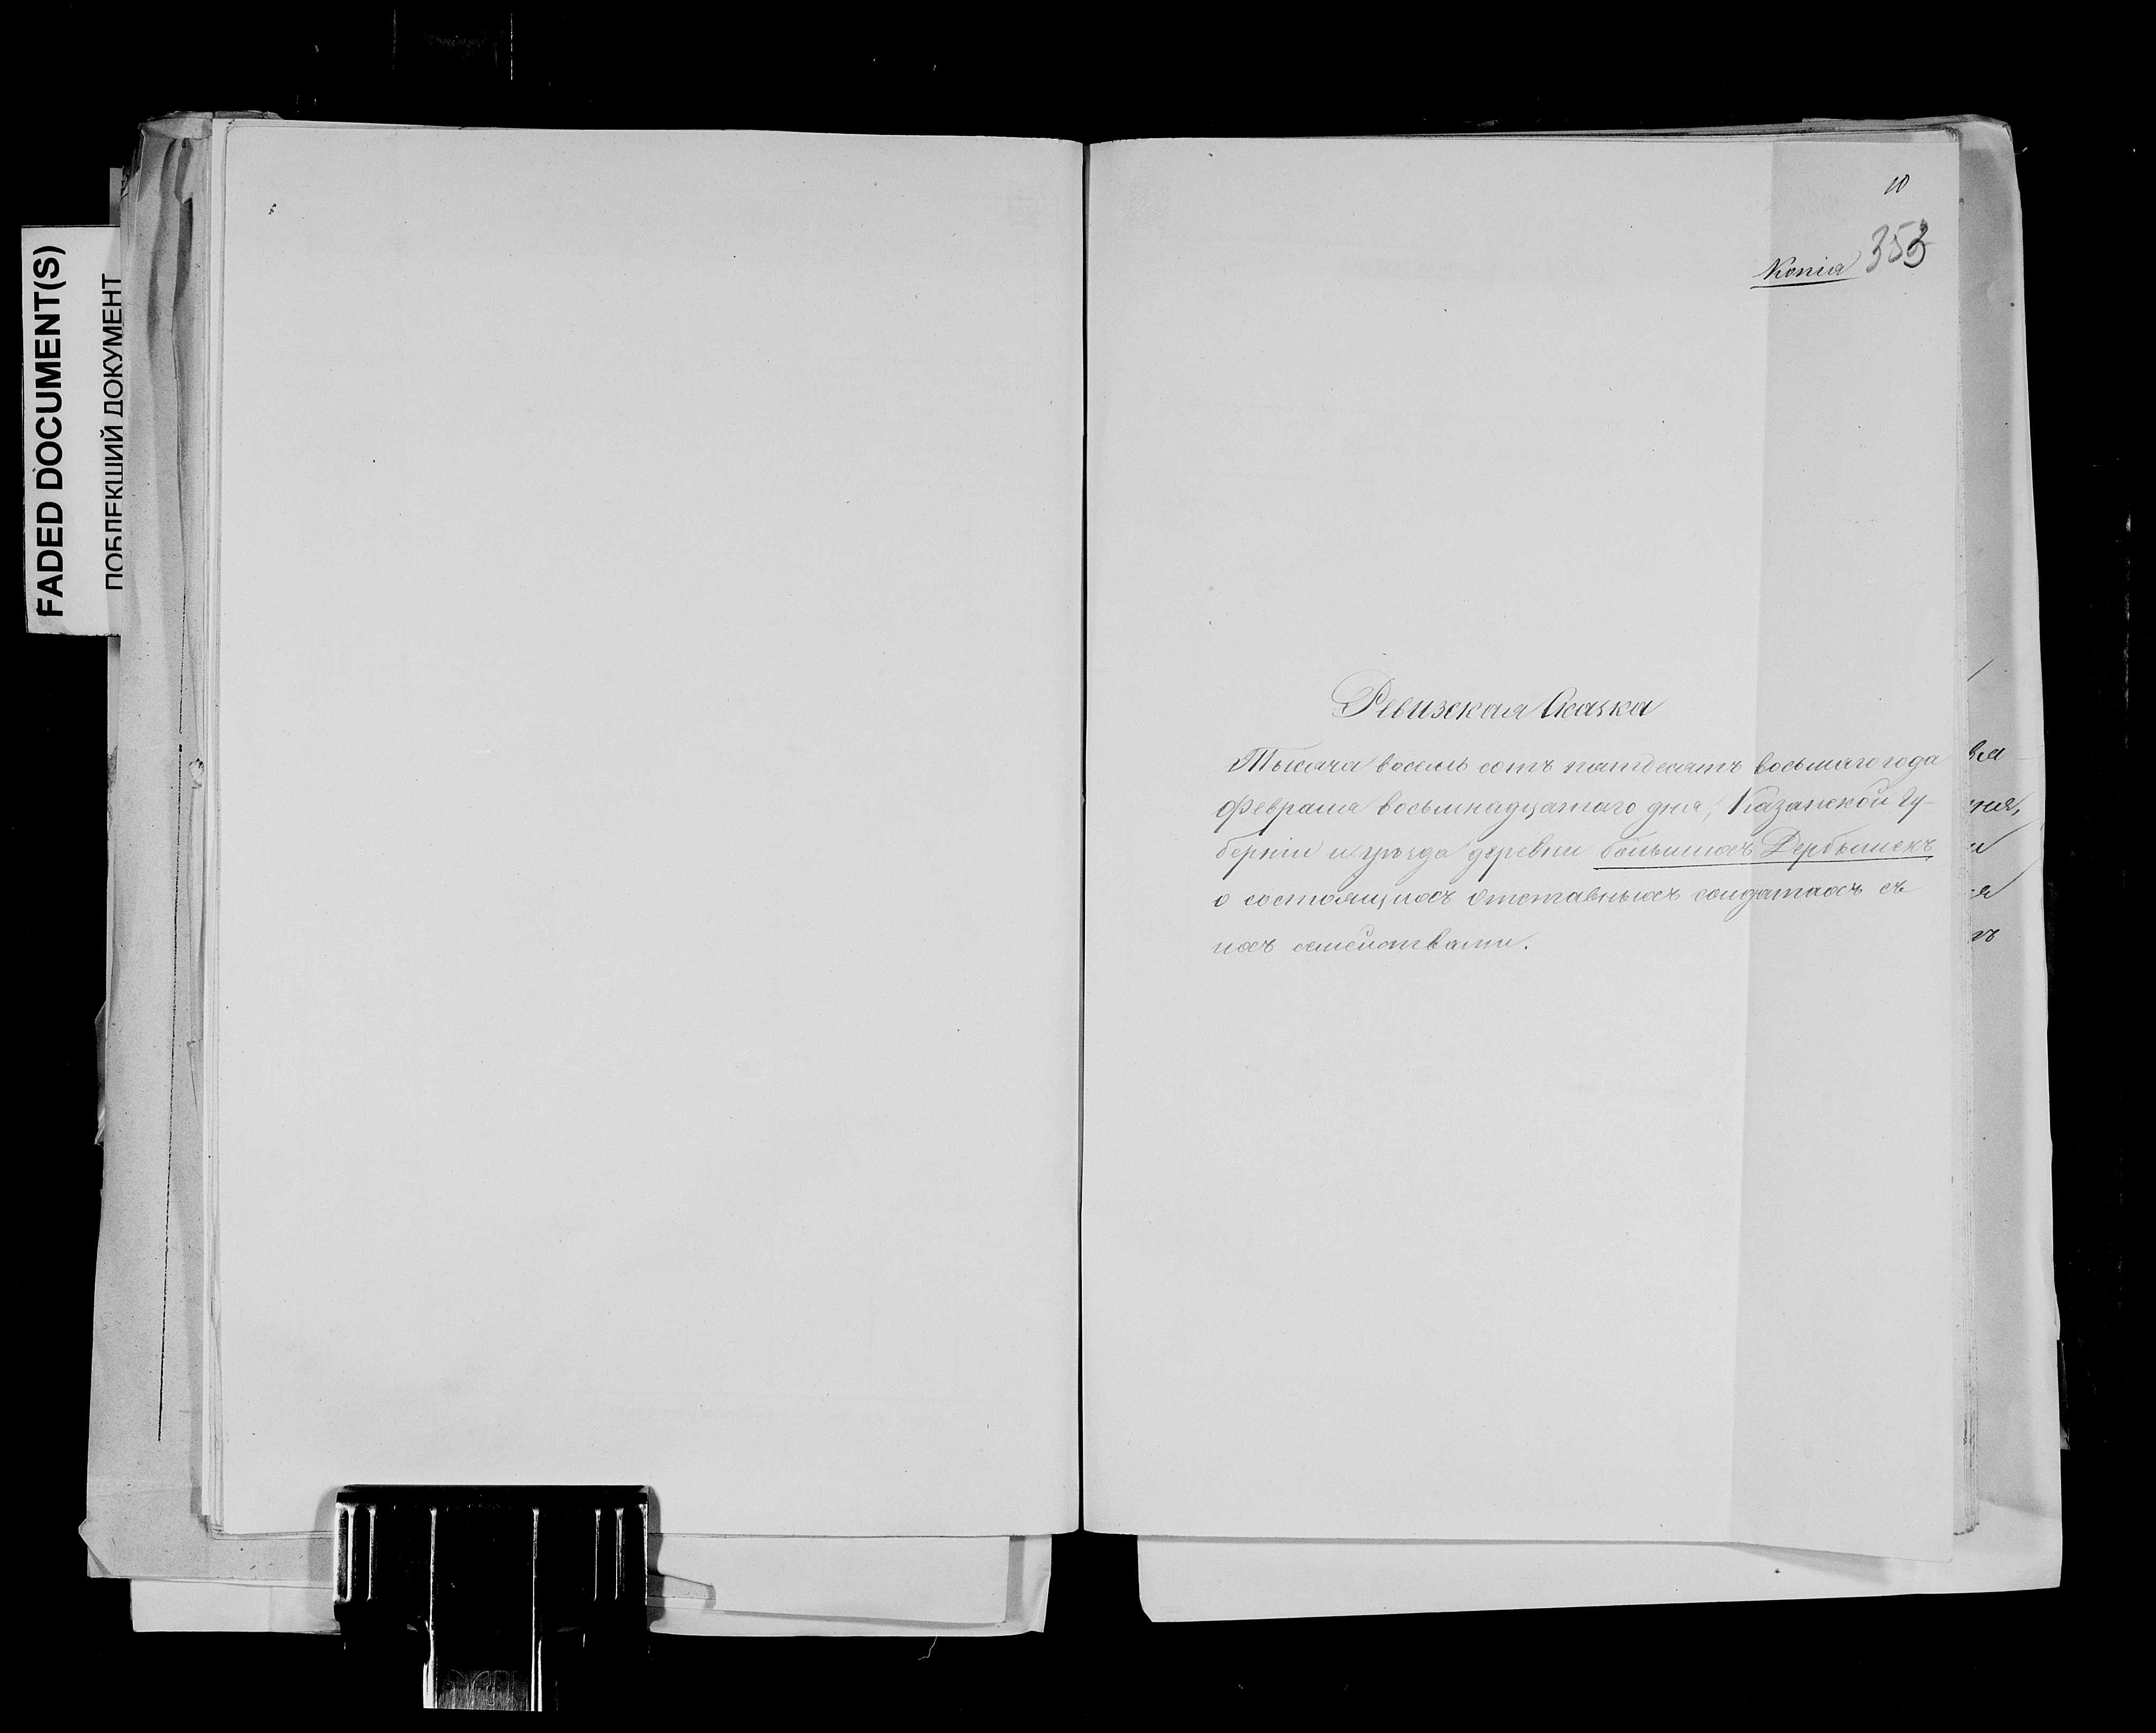 FADED DOCUMENT(S)
ПОБЛЕКШИЙ ДОКУМЕНТ
10
353
Копія
Ревизская Сказка
Тысяча восемь сотъ пятдесятъ восьмаго года
Февраля восьмнадцатаго дня, Казанской Гу-
берніи и уѣзда деревни большихъ Дербышекъ
о состоящихъ отставныхъ солдатахъ съ
ихъ семействами.